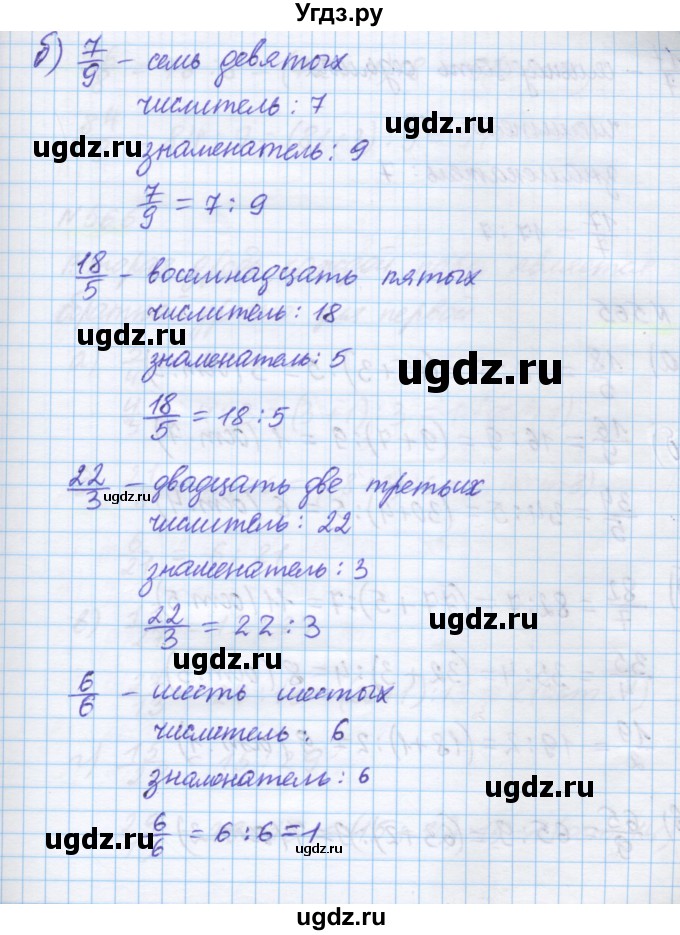 Угдз.ру
б) 7/9 - семь девятых
числитель: 7
знаменатель: 9
7/9 = 7 : 9
18/5 - восемнадцать пятых
числитель: 18
знаменатель: 5
18/5 = 18 : 5
22/3 - двадцать две третьих
числитель: 22
знаменатель: 3
22/3 = 22 : 3
6/6 - шесть шестых
числитель: 6
знаменатель: 6
6/6 = 6 : 6 = 1
ugdz.ru
ugdz.ru
ugdz.ru
ugdz.ru
ugdz.ru
ugdz.ru
ugdz.ru
ugdz.ru
ugdz.ru
ugdz.ru
ugdz.ru
ugdz.ru